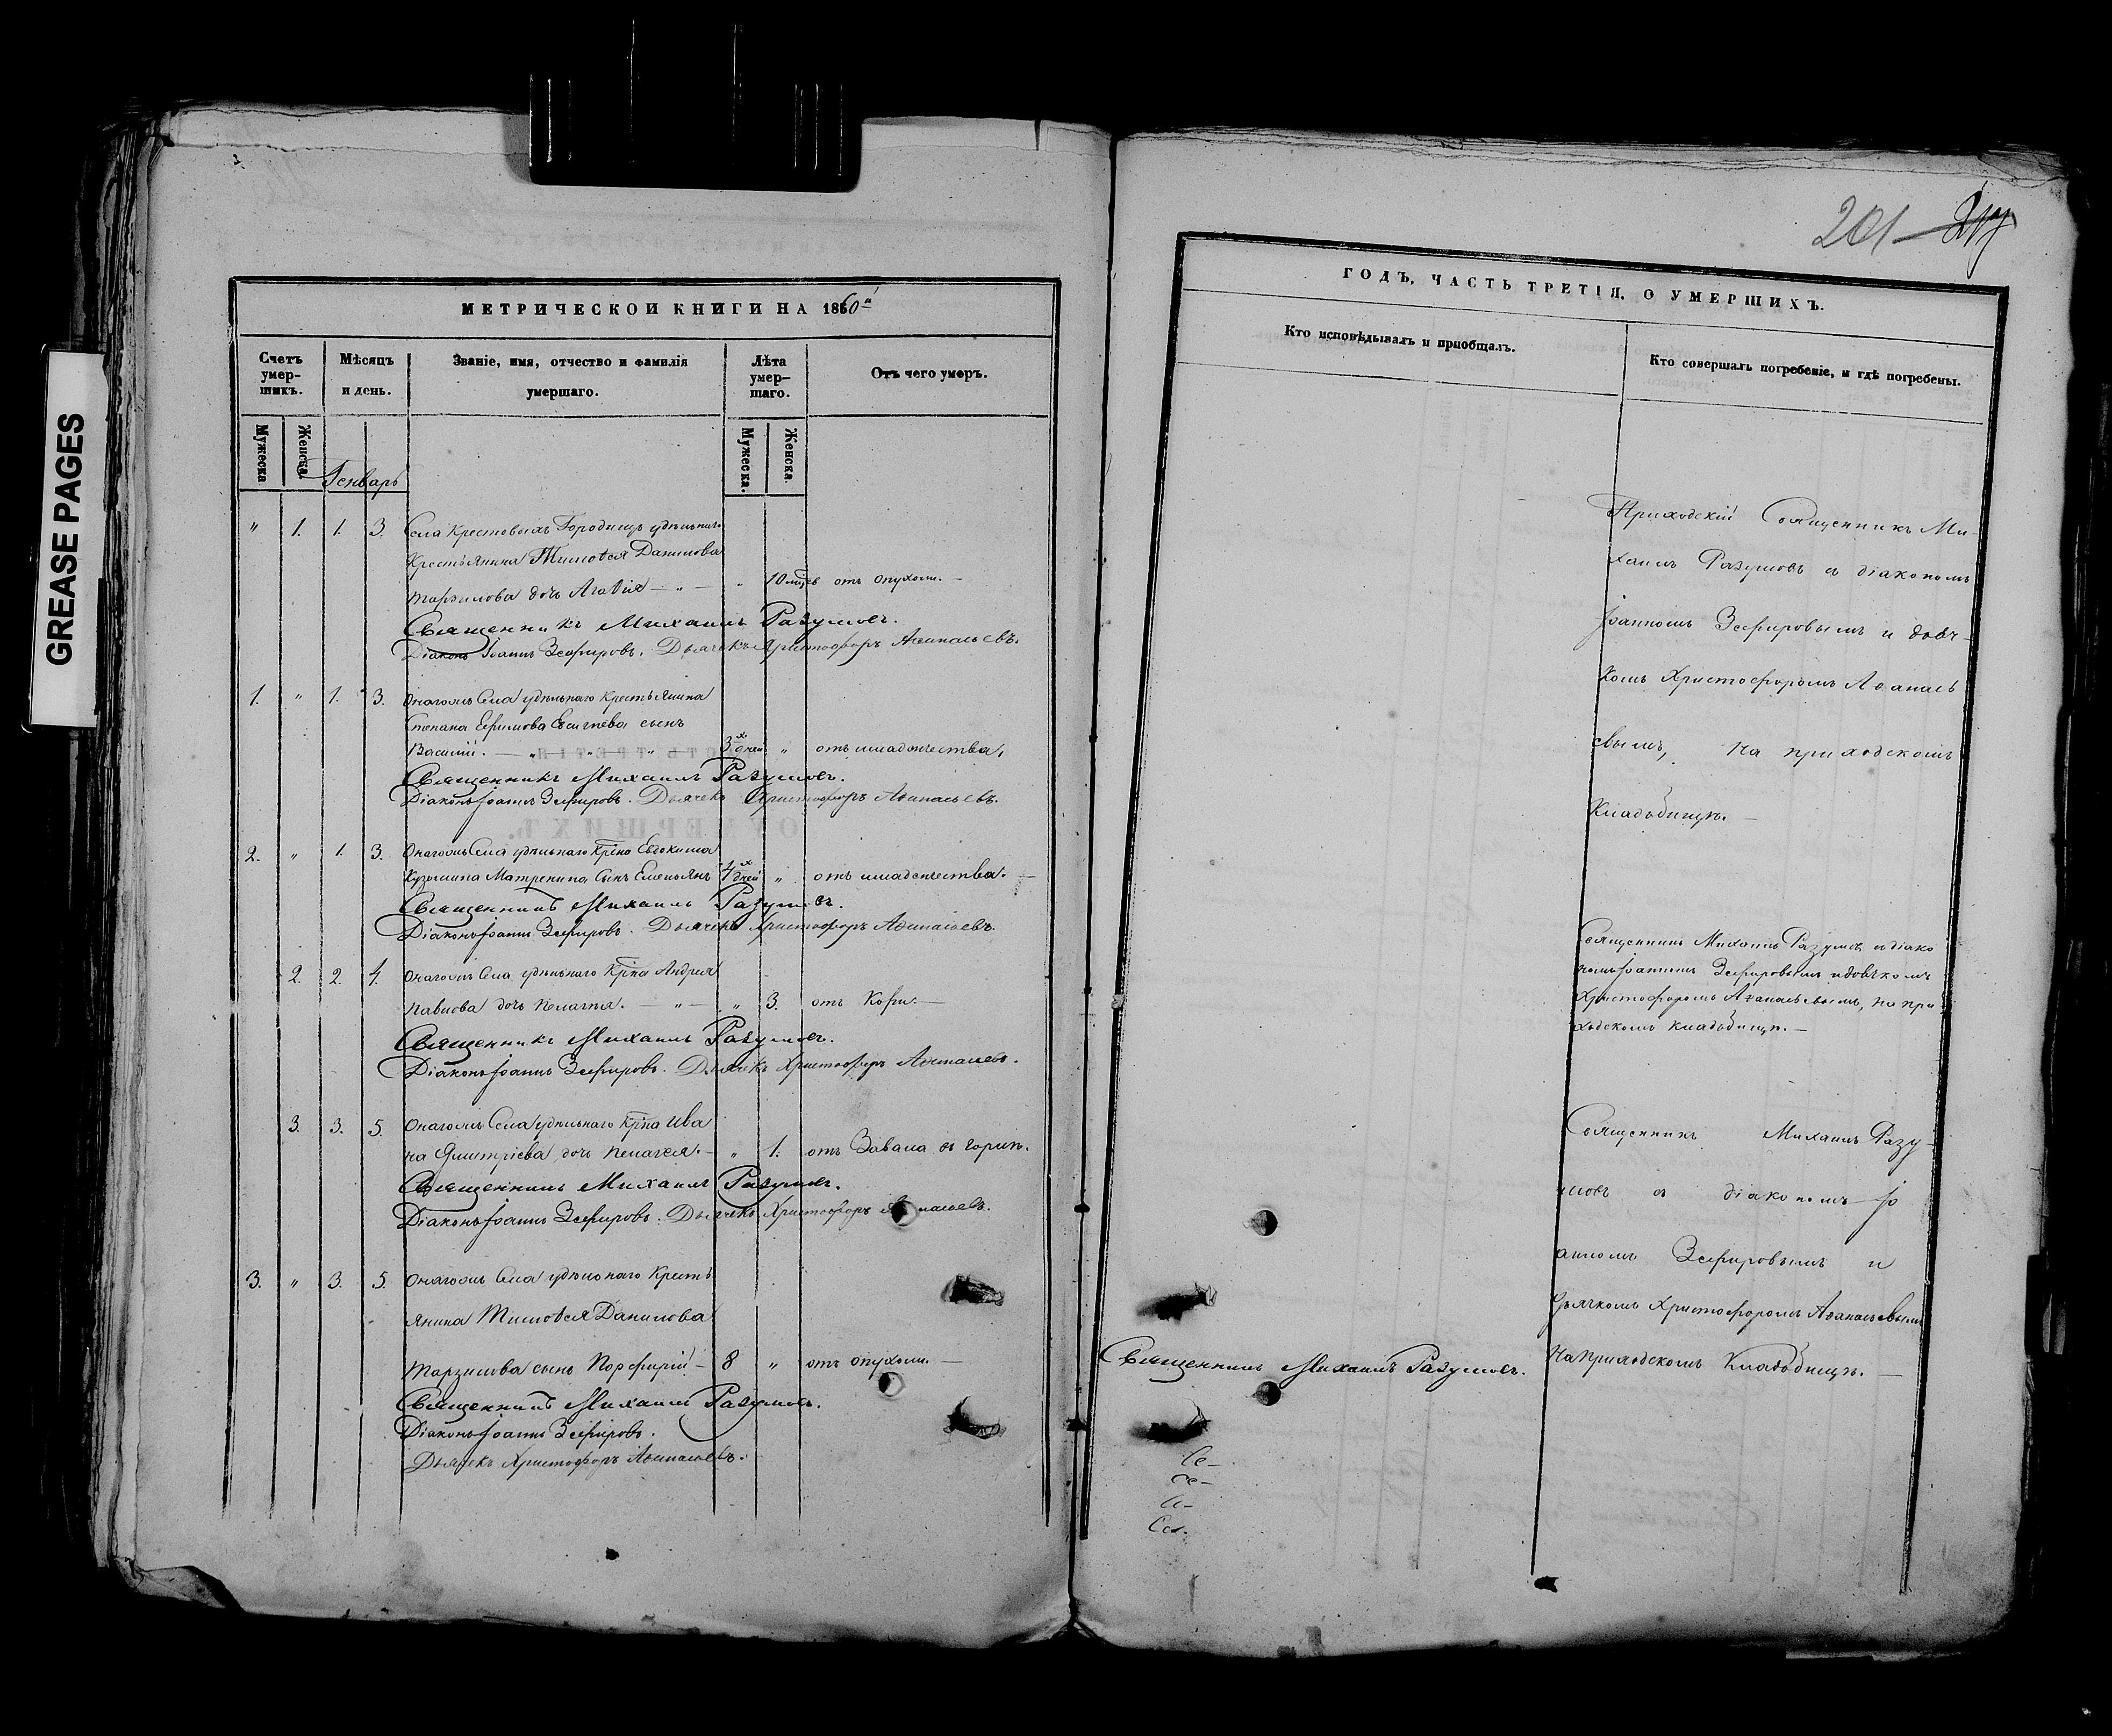 GREASE PAGES
МЕТРИЧЕСКОЙ КНИГИ НА 1860й
Счетъ умер-шихъ.
Мѣсяцъ и день.
Званіе, имя, отчество и фамилія умершаго.
Лѣта умер-шаго.
Отъ чего умеръ.
Мужеска
Женска.
Мужеска.
Женска.
Генварь
" 1. 1. 3. Села Крестовыхъ Городищъ удѣльнаго
Крестьянина Тимоѳея Данилова
дочь Агаѳія — " — " 10 мцевъ отъ опухоли. —
Священникъ Михаилъ Разумовъ.
Діаконъ Іоаннъ Зефировъ. Дьячекъ Христофоръ Аѳанасьевъ.
1. " 1. 3. Онагожъ Села удѣльнаго Крестьянина
Степана Ефимова сынъ
Василій. — " " " 3х дней " отъ младенчества.
Священникъ Михаилъ Разумовъ.
Діаконъ Іоаннъ Зефировъ. Дьячекъ Христофоръ Аѳанасьевъ.
2. " 1. 3. Онагожъ Села удѣльнаго Крѣна Евдокима
Кузьмина Матренина Сынъ Емельянъ дней " отъ младенчества. —
Священникъ Михаилъ Разумовъ.
Діаконъ Іоаннъ Зефировъ. Дьячекъ Христофоръ Аѳанасьевъ.
2. 2. 4. Онагожъ Села удѣльнаго Крѣна Андрея
Павлова дочь Пелагія. — " — " 3. отъ Кори. —
Священникъ Михаилъ Разумовъ.
Діаконъ Іоаннъ Зефировъ. Дьячекъ Христофоръ Аѳанасьевъ.
3. 3. 5. Онагожъ Села удѣльнаго Крѣна Ива
на Дмитріева дочь Пелагея. — " 1. отъ Завала въ горлѣ.
Священникъ Михаилъ Разумовъ.
Діаконъ Іоаннъ Зефировъ. Дьячекъ Христофоръ Аѳанасьевъ.
3. " 3. 5. Онагожъ Села удѣльнаго Кресть
янина Тимоѳея Данилова
сынъ Порфирій — 8 " отъ опухоли. —
Священникъ Михаилъ Разумовъ.
Діаконъ Іоаннъ Зефировъ.
Дьячекъ Христофоръ Аѳанасьевъ.
201
ГОДЪ, ЧАСТЬ ТРЕТІЯ, О УМЕРШИХЪ.
Кто исповѣдывалъ и пріобщалъ.
Кто совершалъ погребеніе, и гдѣ погребены.
Приходскій Священникъ Ми-
хаилъ Разумовъ съ діакономъ
Іоанномъ Зефировымъ и дьяч-
комъ Христофоромъ Аѳанась
евымъ, на приходскомъ
Кладбищѣ. —
Священникъ Михаилъ Разумовъ съ діако
номъ Іоанномъ Зефировымъ и дьячкомъ
Христофоромъ Аѳанасьевымъ, на при
ходскомъ кладбищѣ. —
Священникъ Михаилъ Разу-
мовъ съ діакономъ Іо
анномъ Зефировымъ и
дьячкомъ Христофоромъ Аѳанасьевымъ
Священникъ Михаилъ Разумовъ.
На приходскомъ Кладбищѣ. —